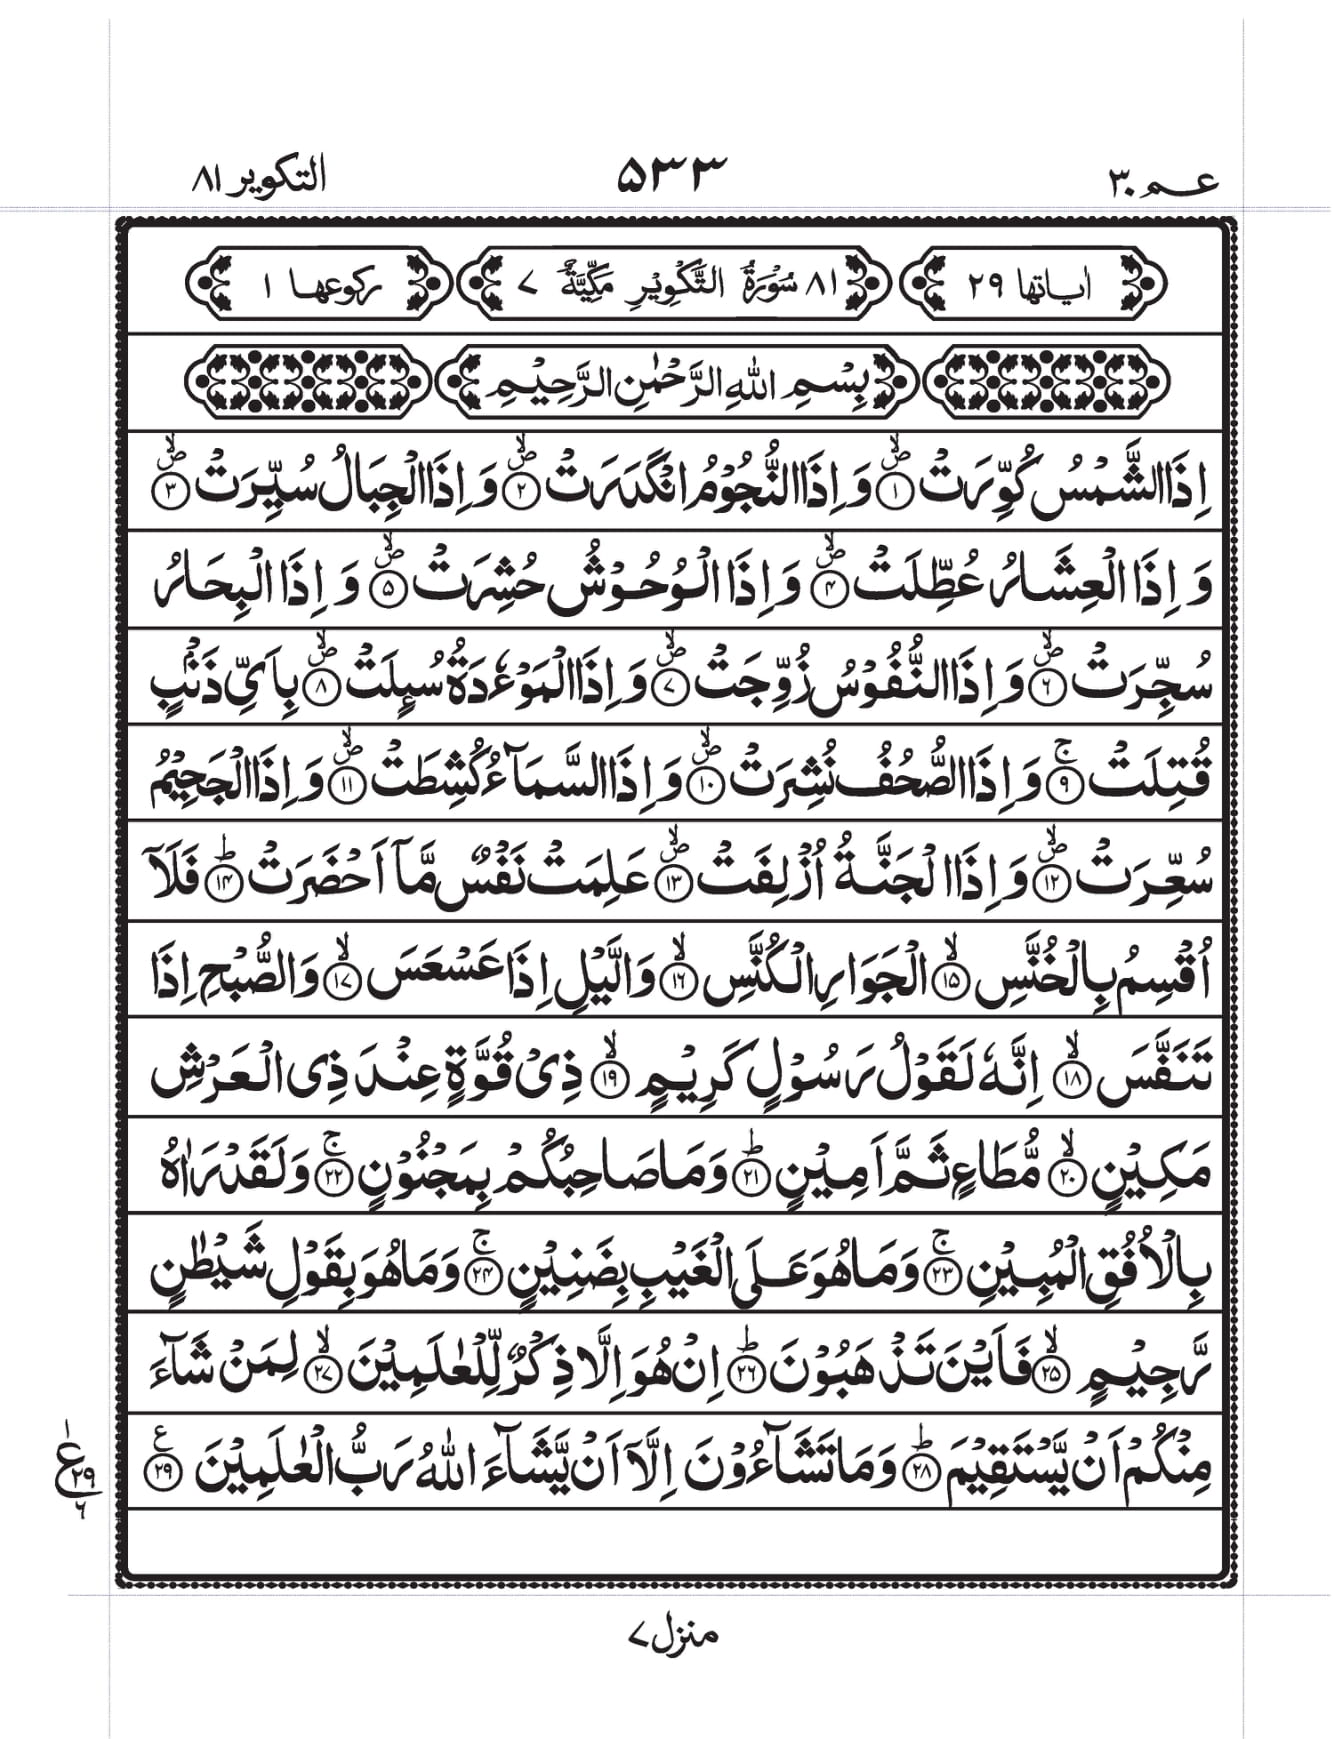 عم ٣٠ ۵٣٣ التكوير ٨١
اٰیاتها ٢٩ ٨١ سُوْرَةُ التَّكْوِيْرِ مَكِّيَّةٌ ٧ ركوعها ١
بِسْمِ اللّٰهِ الرَّحْمٰنِ الرَّحِيْمِ
اِذَا الشَّمْسُ كُوِّرَتْ ۪ۙ ﴿۱﴾ وَ اِذَا النُّجُوْمُ انْكَدَرَتْ ۪ۙ ﴿۲﴾ وَ اِذَا الْجِبَالُ سُيِّرَتْ ۪ۙ ﴿۳﴾
وَ اِذَا الْعِشَارُ عُطِّلَتْ ۪ۙ ﴿۴﴾ وَ اِذَا الْوُحُوْشُ حُشِرَتْ ۪ۙ ﴿۵﴾ وَ اِذَا الْبِحَارُ
سُجِّرَتْ ۪ۙ ﴿۶﴾ وَ اِذَا النُّفُوْسُ زُوِّجَتْ ۪ۙ ﴿۷﴾ وَ اِذَا الْمَوْءٗدَةُ سُىِٕلَتْ ۪ۙ ﴿۸﴾ بِاَيِّ ذَنْۢبٍ
قُتِلَتْ ۚ ﴿۹﴾ وَ اِذَا الصُّحُفُ نُشِرَتْ ۪ۙ ﴿۱۰﴾ وَ اِذَا السَّمَآءُ كُشِطَتْ ۪ۙ ﴿۱۱﴾ وَ اِذَا الْجَحِيْمُ
سُعِّرَتْ ۪ۙ ﴿۱۲﴾ وَ اِذَا الْجَنَّةُ اُزْلِفَتْ ۪ۙ ﴿۱۳﴾ عَلِمَتْ نَفْسٌ مَّاۤ اَحْضَرَتْ ؕ ﴿۱۴﴾ فَلَاۤ
اُقْسِمُ بِالْخُنَّسِ ۙ ﴿۱۵﴾ الْجَوَارِ الْكُنَّسِ ۙ ﴿۱۶﴾ وَ الَّيْلِ اِذَا عَسْعَسَ ۙ ﴿۱۷﴾ وَ الصُّبْحِ اِذَا
تَنَفَّسَ ۙ ﴿۱۸﴾ اِنَّهٗ لَقَوْلُ رَسُوْلٍ كَرِيْمٍ ۙ ﴿۱۹﴾ ذِيْ قُوَّةٍ عِنْدَ ذِی الْعَرْشِ
مَكِيْنٍ ۙ ﴿۲۰﴾ مُّطَاعٍ ثَمَّ اَمِيْنٍ ؕ ﴿۲۱﴾ وَ مَا صَاحِبُكُمْ بِمَجْنُوْنٍ ۚ ﴿۲۲﴾ وَ لَقَدْ رَاٰهُ
بِالْاُفُقِ الْمُبِيْنِ ۚ ﴿۲۳﴾ وَ مَا هُوَ عَلَی الْغَيْبِ بِضَنِيْنٍ ۚ ﴿۲۴﴾ وَ مَا هُوَ بِقَوْلِ شَيْطٰنٍ
رَّجِيْمٍ ۙ ﴿۲۵﴾ فَاَيْنَ تَذْهَبُوْنَ ؕ ﴿۲۶﴾ اِنْ هُوَ اِلَّا ذِكْرٌ لِّلْعٰلَمِيْنَ ۙ ﴿۲۷﴾ لِمَنْ شَآءَ
مِنْكُمْ اَنْ يَّسْتَقِيْمَ ؕ ﴿۲۸﴾ وَ مَا تَشَآءُوْنَ اِلَّاۤ اَنْ يَّشَآءَ اللّٰهُ رَبُّ الْعٰلَمِيْنَ ﴿۲۹﴾ ع
١ ع ٢٩ ٦
منزل ٧